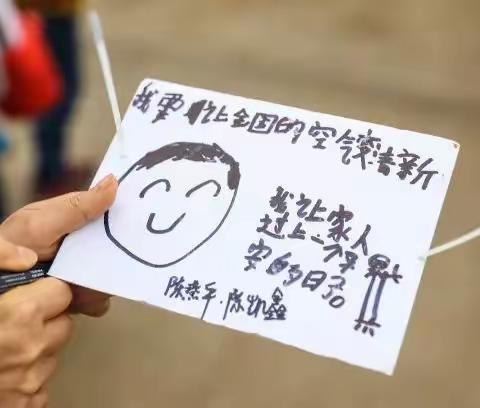 我要让全国的空气变清新
我让家人
过上一个平
安的日子。
陈泰平.陈凯鑫